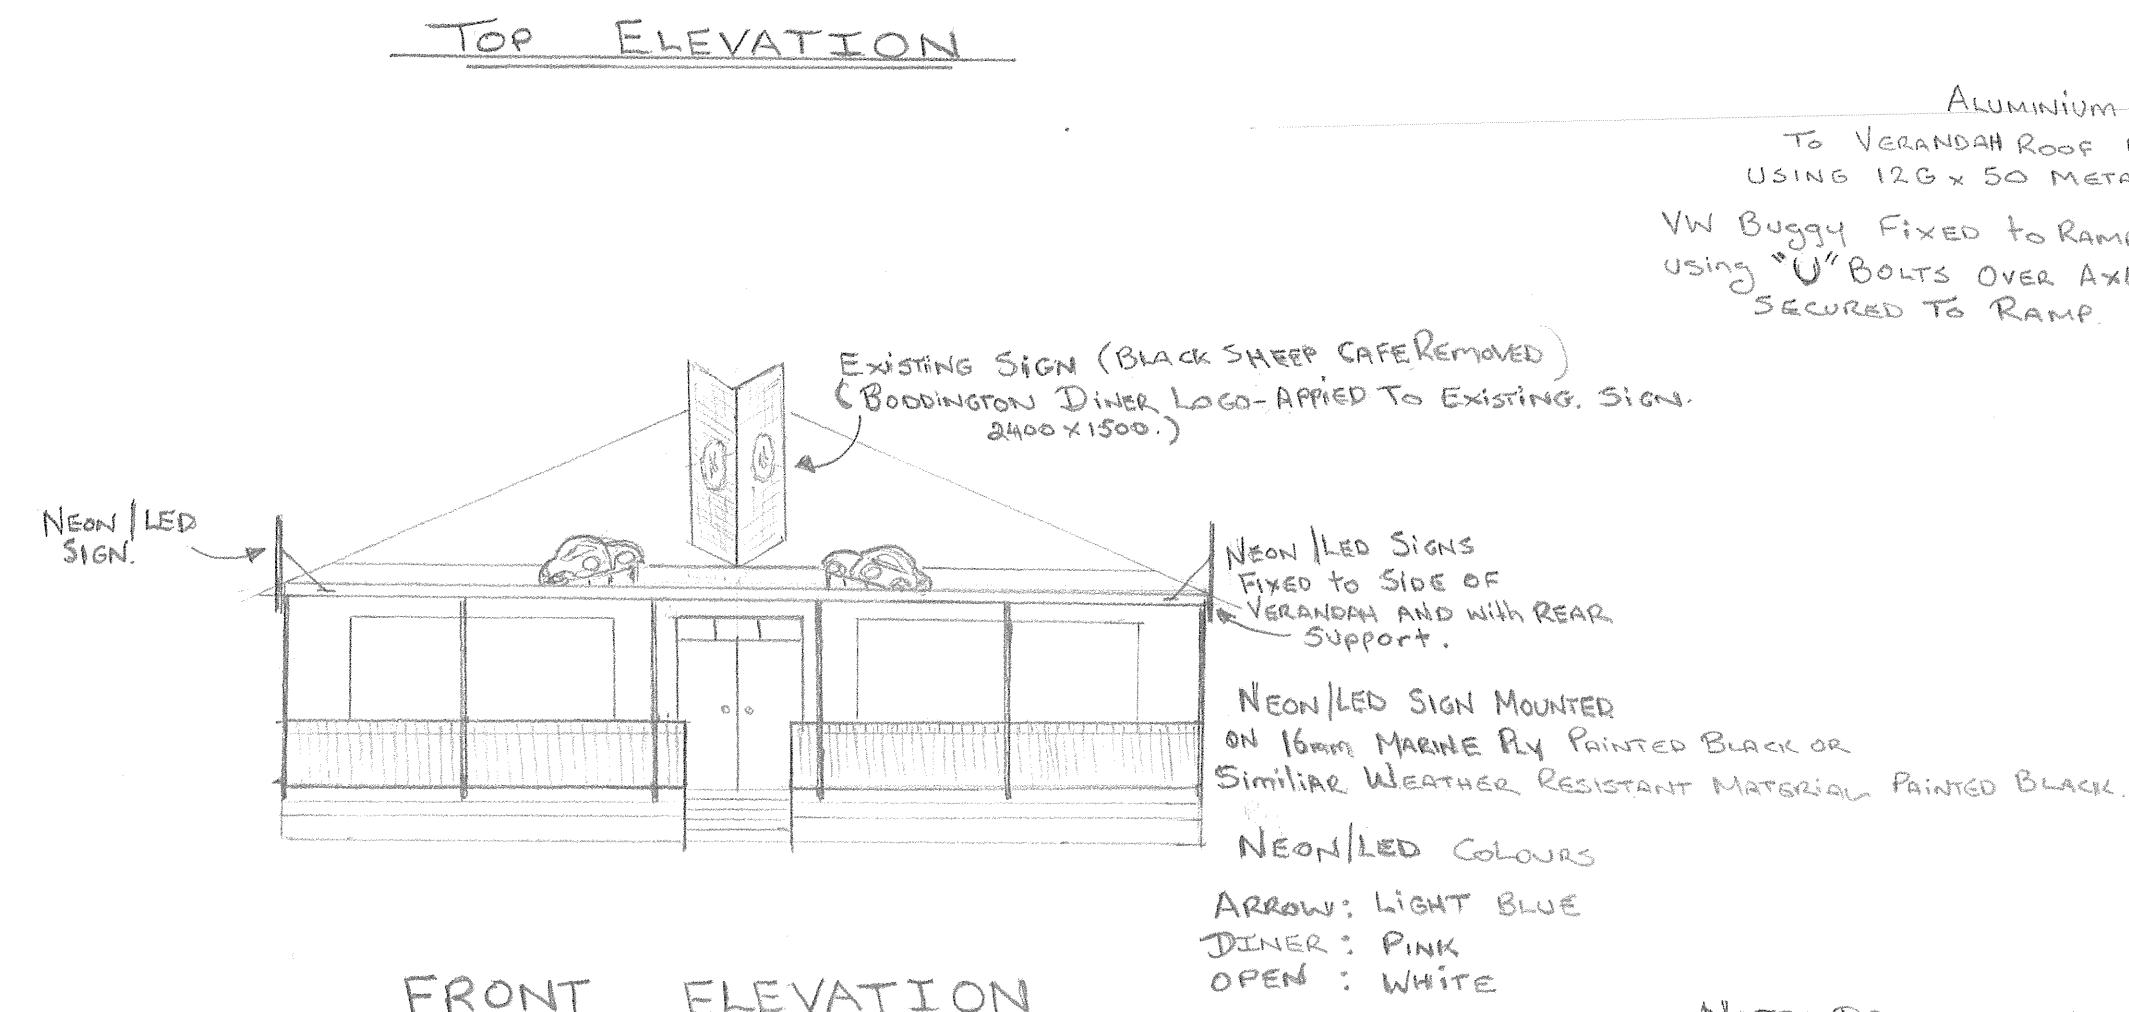 TOP ELEVATION
ALUMINIUM
TO VERANDAH ROOF
USING 12G x 50 META
VW Buggy FIXED to RAMP
using "U" BOLTS OVER AX
SECURED TO RAMP.
EXISTING SIGN (BLACK SHEEP CAFE REMOVED)
(BODDINGTON DINER LOGO - APPIED TO EXISTING. SIGN.
2400 x 1500.)
NEON/LED
SIGN.
NEON/LED SIGNS
FIXED to SIDE OF
VERANDAH AND with REAR
Support.
NEON/LED SIGN MOUNTED
ON 16mm MARINE PLY PAINTED BLACK OR
SimiliAR WEATHER RESISTANT MATERIAL PAINTED BLACK.
NEON/LED COLOURS
ARROW: LIGHT BLUE
DINER: PINK
OPEN: WHITE
FRONT ELEVATION